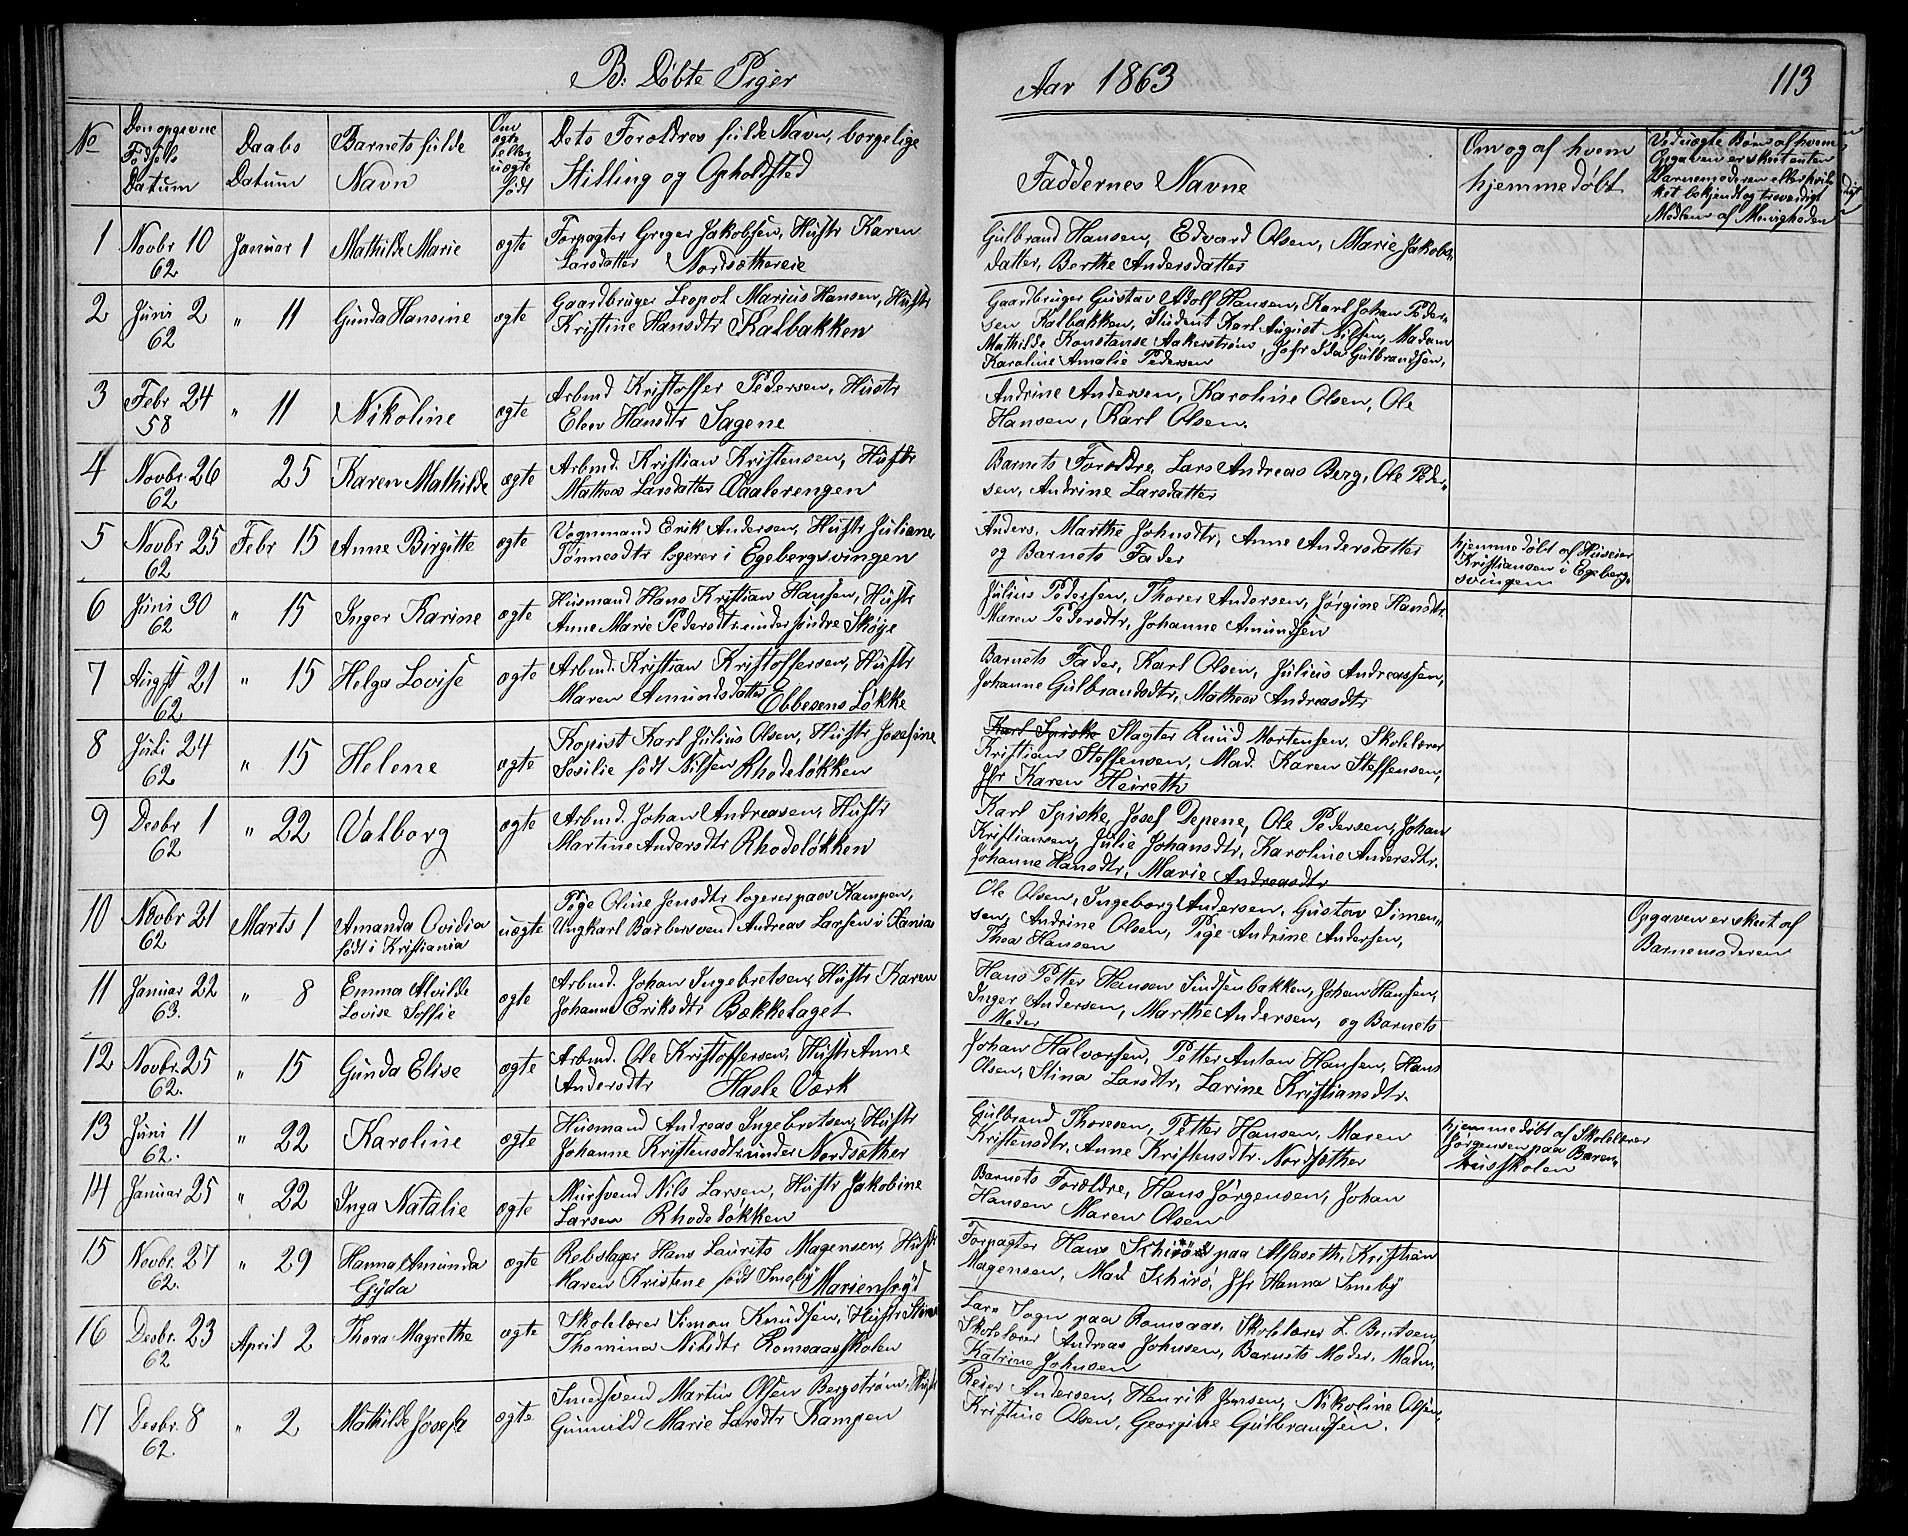 B. Døbte Piger
Aar 1863
113
No
Den opgivne
Fødsels
Datum
Daabs
Datum
Barnets fulde
Navn
Om
ægte
eller
uægte
født
Dets Forældres fulde Navn, borgelige
Stilling og Opholdsted
Faddernes Navne
Om og af hvem
hjemmedøbt
Ved uægte Børn af hvem
Opgaven er skeet enten
Barnemoderen eller hvil-
ket bekjendt og troværdigt
Medlem af Menigheden
1 Novbr 10 Januar 1 Mathilde Marie ægte Forpagter Greger Jakobsen, Hustr Karen
62 Larsdatter Nordsæthereie
Gulbrand Hansen, Edvard Olsen, Marie Jakobs-
datter, Berthe Andersdatter
2 Juni 2 " 11 Gunda Hansine ægte Gaardbruger Leopol Marius Hansen, Hustr
62 Kristine Hansdtr Kalbakken
Gaardbruger Gustav Adolf Hansen, Karl Johan Peder-
sen Kalbakken, Student Karl August Nilsen, Madam
Mathilde Konstanse Aakerstrøm, Jofr Ida Gulbrandsen,
Karoline Amalie Pedersen
3 Febr 24 " 11 Nikoline ægte Arbmd Kristoffer Pedersen, Hustr
58 Elen Hansdtr Sagene
Andrine Andersen, Karoline Olsen, Ole
Hansen, Karl Olsen.
4 Novbr. 26 25 Karen Mathilde ægte Arbmd. Kristian Kristensen, Hustr
62 Mathea Larsdatter Vaalerengen
Barnets Forældre, Lars Andreas Berg, Ole Peder-
sen, Andrine Larsdatter
5 Novbr 25 Febr 15 Anne Birgitte ægte Vognmand Erik Andersen, Hustr Juliane
62 Tønnesdtr logerer i Egebergsvingen
Anders, Marthe Johnsdtr, Anne Andersdatter
og Barnets Fader
hjemmedøbt af Huseier
Kristiansen i Egeberg-
svingen
6 Juni 30 " 15 Inger Karine ægte Husmand Hans Kristian Hansen, Hustr
62 Anne Marie Pedersdtr. under søndre Skøye
Julius Pedersen, Thorer Andersen, Jørgine Hansdtr.
Maren Pedersdtr, Johanne Amundsen
7 Augst 21 " 15 Helga Lovise ægte Arbmd. Kristian Kristoffersen, Hustr
62 Maren Amundsdatter Ebbesens Løkke
Barnets Fader, Karl Olsen, Julius Andreassen,
Johanne Gulbrandsdtr, Mathea Andreasdtr
8 Juli 24 " 15 Helene ægte Kopist Karl Julius Olsen, Hustr Josefine
62 Sesilie født Nilsen Rhodeløkken
Karl Spiske Slagter Knud Mortensen, Skolelærer
Kristian Steffensen, Mad. Karen Steffensen,
Jfr Karen Heireth
9 Desbr 1 " 22 Valborg ægte Arbmd. Johan Andreasen, Hustr
62 Martine Andersdtr Rhodeløkken
Karl Spiske, Josef Depene, Ole Pedersen, Johan
Kristiansen, Julie Johansdtr, Karoline Andersdtr.
Johanne Hansdtr, Marie Andreasdtr
10 Novbr 21 Marts 1 Amanda Ovidia uægte Pige Oline Jensdtr logerer paa Kampen,
62 født i Kristiania Ungkarl Barbersvend Andreas Larsen i Xania
Ole Olsen, Ingeborg Andersen, Gustav Simen-
sen, Andrine Olsen, Pige Andrine Andersen,
Thea Hansen
Opgaven er skeet af
Barnemoderen
11 Januar 22 " 8 Emma Alvilde ægte Arbmd. Johan Ingebretsen, Hustr Karen
63. Lovise Soffie Johanne Eriksdtr Bækkelaget
Hans Petter Hansen Sindsenbakken, Johan Hansen,
Inger Andersen, Marthe Andersen, og Barnets
Moder
12 Novbr. 25 " 15 Gunda Elise ægte Arbmd. Ole Kristoffersen, Hustr Anne
62. Andersdtr Hasle Værk
Johan Halvorsen, Petter Anton Hansen, Hans
Olsen, Stina Larsdtr, Larine Kristiansdtr.
13 Juni 11 " 22 Karoline ægte Husmand Andreas Ingebretsen, Hustr
62. Johanne Kristensdtr. under Nordsæther
Gulbrand Thoresen, Petter Hansen, Maren
Kristensdtr, Anne Kristensdtr. Nordsæther
hjemmedøbt af Skolelærer
Jørgensen paa Baren-
husskolen
14 Januar 25 " 22 Inga Natalie ægte Mursvend Nils Larsen, Hustr Jakobine
Larsen Rhodeløkken
Barnets Forældre, Hans Jørgensen, Johan
Hansen Maren Olsen
15 Novbr. 27 " 29 Hanna Amunda ægte Rebslager Hans Laurits Magensen, Hustr
62. Gyda Maren Kristene født Smeby Marienfryd
Forpagter Hans Schirö paa Alfaseth, Kristian
Magensen, Mad Schirö, Jfr Hanna Smeby
16 Desbr. 23 April 2 Thora Magrethe ægte Skolelærer Simon Knudsen, Hustr Stina
62 Thomina Nilsdtr Romsaasskolen
Lars Sogn paa Romsaas, Skolelærer L. Bentsen,
Skolelærer Andreas Johnsen, Barnets Moder, Madm.
Katrine Johnsen
17 Desbr. 8 " 2 Mathilde Josefa ægte Smedsvend Martin Olsen Bergstrøm, Hustr
62. Gunnild Marie Larsdtr Kampen
Reier Andersen, Henrik Jensen, Nikoline Olsen,
Kristine Olsen, Georgine Gulbrandsen.